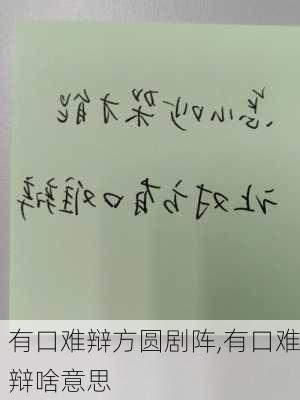 怎么吵架才能
让对方有口难辩
有口难辩方圆剧阵,有口难
辩啥意思